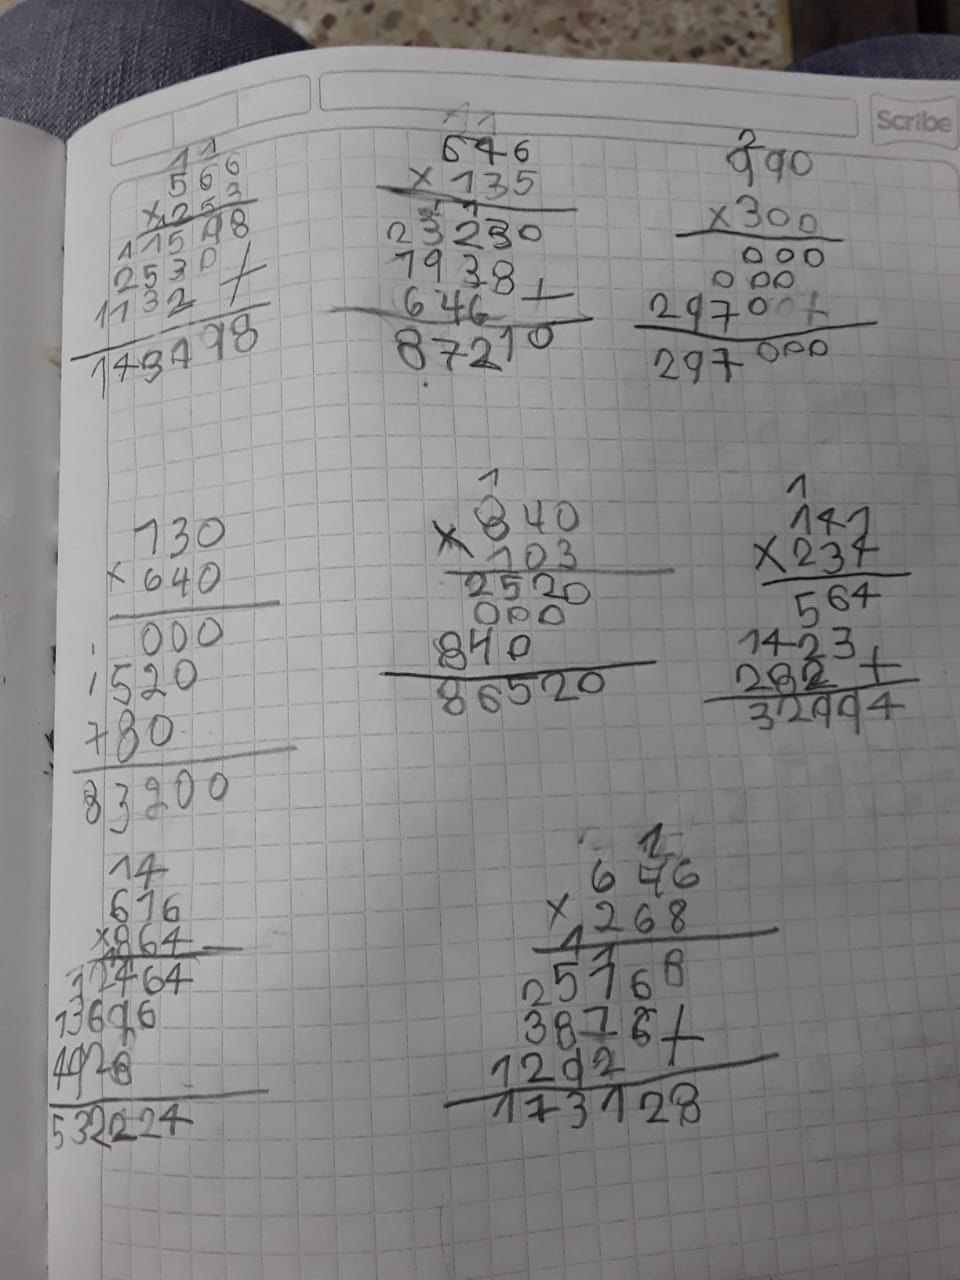 Scribe
11
566
x 253
1598
2530 +
1132
143198
11
646
x 135
23230
1938 +
646
87210
2
990
x300
000
000
29700+
297000
130
x 640
000
1520
780
83200
1
840
x 103
2520
000
840
86520
1
141
x237
564
1423 +
282
32994
14
616
x864
2464
13696
4928
532224
646
x 268
25168
3876+
1292
173128